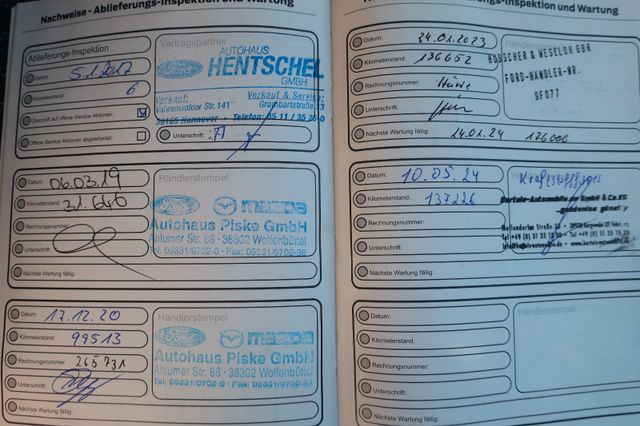 Nachweise - Ablieferungs-Inspektion und Wartung
Ablieferungs-Inspektion
Datum: 5.1.2017
Kilometerstand: 6
Überprüft auf offene Service Aktionen:
Offene Service Aktionen abgearbeitet:
Vertragspartner
Ford
AUTOHAUS
HENTSCHEL
GMBH
Verkauf:
Vahrenwalder Str. 141
Verkauf & Service:
30165 Hannover • Telefon: 05 11 /
Unterschrift:
Datum: 06.03.19
Kilometerstand: 31.640
Rechnungsnummer:
Unterschrift:
Nächste Wartung fällig:
Händlerstempel
Ford mazda
Autohaus Piske GmbH
Ahlumer Str. 86 • 38302 Wolfenbüttel
Datum: 17.12.20
Kilometerstand: 99513
Rechnungsnummer: 265731
Unterschrift:
Nächste Wartung fällig:
Händlerstempel
Ford mazda
Autohaus Piske GmbH
Ahlumer Str. 86 • 38302 Wolfenbüttel
-Inspektion und Wartung
Datum: 24.01.2023
Kilometerstand: 136652
Rechnungsnummer:
Unterschrift:
Nächste Wartung fällig: 24.01.24
Händlerstempel
& WESELOH GBR
FORD-HÄNDLER-NR.
Datum: 10.05.24
Kilometerstand: 137226
Rechnungsnummer:
Unterschrift:
Nächste Wartung fällig:
Händlerstempel
GmbH & Co.KG
Datum:
Kilometerstand:
Rechnungsnummer:
Unterschrift:
Nächste Wartung fällig:
Händlerstempel